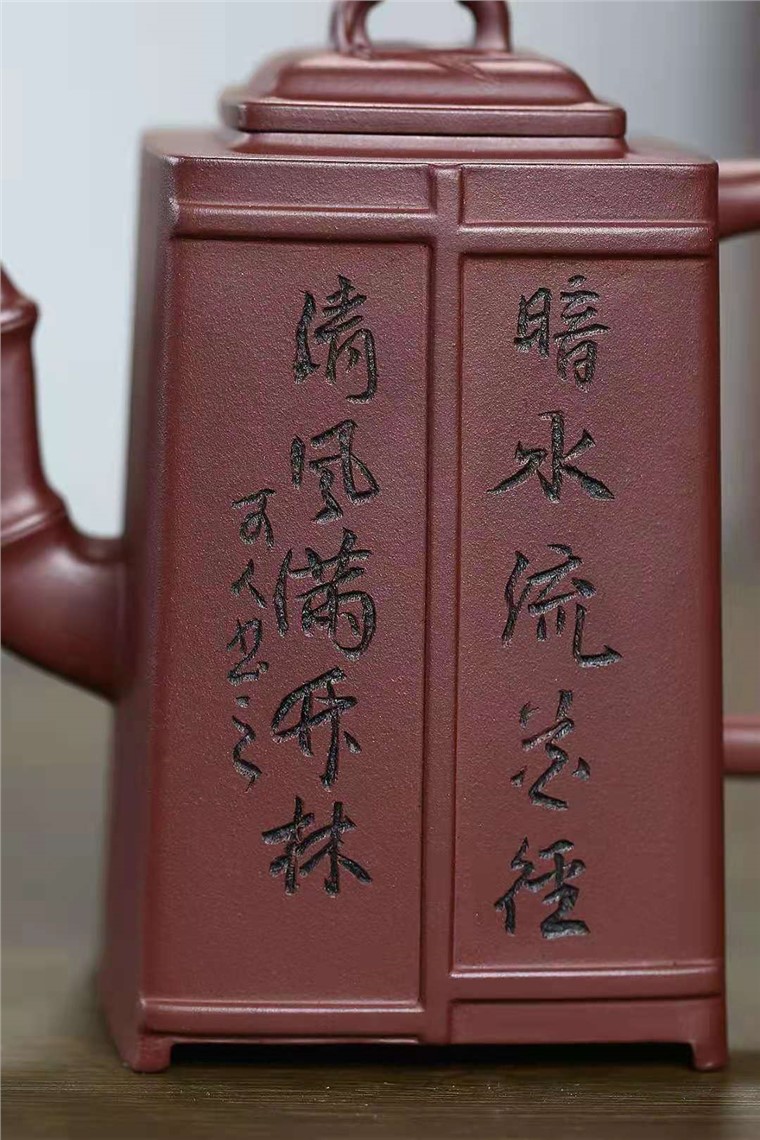 暗水流花径
清风满竹林
可人书之